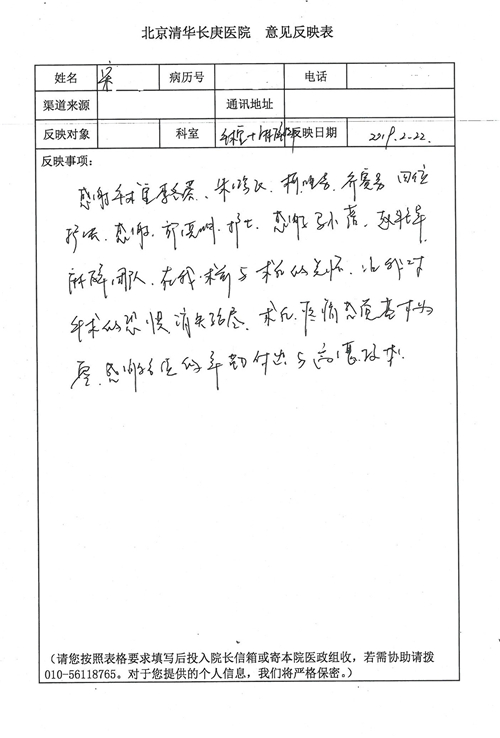 北京清华长庚医院 意见反映表
姓名 宋 病历号 电话
渠道来源 通讯地址
反映对象 科室 手术室+麻醉科 反映日期 2019.2-22.
反映事项：
感谢手术室 四位
护士、感谢 护士 感谢
麻醉团队、在我术前与术后的关怀、让我对
手术的恐惧消失殆尽、术后疼痛感觉基本为
零、感谢 的辛勤付出与高超技术.
（请您按照表格要求填写后投入院长信箱或寄本院医政组收，若需协助请拨
010-56118765。对于您提供的个人信息，我们将严格保密。）